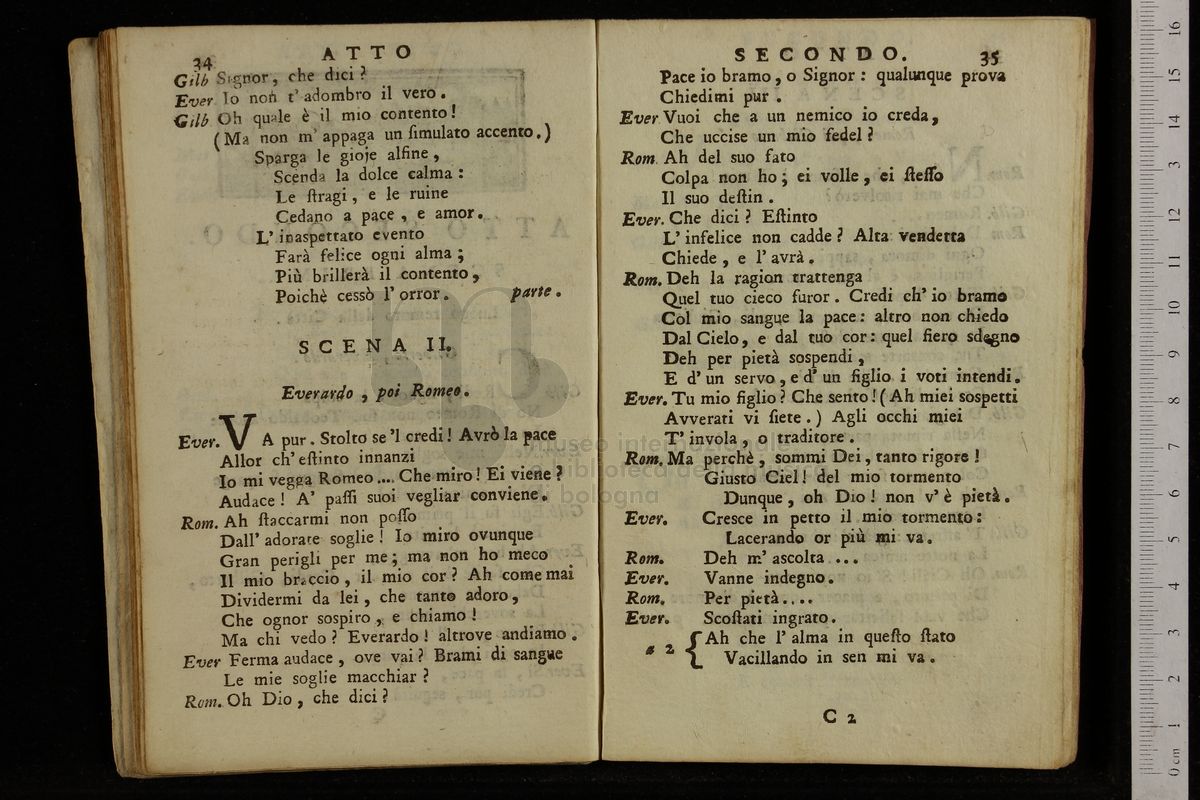 34
ATTO
Gilb Signor, che dici?
Ever Io non t' adombro il vero.
Gilb Oh quale è il mio contento!
(Ma non m' appaga un ſimulato accento.)
Sparga le gioje alfine,
Scenda la dolce calma:
Le ſtragi, e le ruine
Cedano a pace, e amor.
L' inaspettato evento
Farà felice ogni alma;
Più brillerà il contento,
Poichè cessò l' orror. parte.
SCENA II.
Everardo, poi Romeo.
Ever. VA pur. Stolto se 'l credi! Avrò la pace
Allor ch' eſtinto innanzi
Io mi vegga Romeo.... Che miro! Ei viene?
Audace! A' paſſi suoi vegliar conviene.
Rom. Ah ſtaccarmi non poſſo
Dall' adorate soglie! Io miro ovunque
Gran perigli per me; ma non ho meco
Il mio braccio, il mio cor? Ah come mai
Dividermi da lei, che tanto adoro,
Che ognor sospiro, e chiamo!
Ma chi vedo? Everardo! altrove andiamo.
Ever Ferma audace, ove vai? Brami di sangue
Le mie soglie macchiar?
Rom. Oh Dio, che dici?
SECONDO.
35
Pace io bramo, o Signor: qualunque prova
Chiedimi pur.
Ever Vuoi che a un nemico io creda,
Che uccise un mio fedel?
Rom. Ah del suo fato
Colpa non ho; ei volle, ei ſteſſo
Il suo deſtin.
Ever. Che dici? Eſtinto
L' infelice non cadde? Alta vendetta
Chiede, e l' avrà.
Rom. Deh la ragion trattenga
Quel tuo cieco furor. Credi ch' io bramo
Col mio sangue la pace: altro non chiedo
Dal Cielo, e dal tuo cor: quel fiero sdegno
Deh per pietà sospendi,
E d' un servo, e d' un figlio i voti intendi.
Ever. Tu mio figlio? Che sento! (Ah miei sospetti
Avverati vi ſiete.) Agli occhi miei
T' invola, o traditore.
Rom. Ma perchè, sommi Dei, tanto rigore!
Giusto Ciel! del mio tormento
Dunque, oh Dio! non v' è pietà.
Ever. Cresce in petto il mio tormento:
Lacerando or più mi va.
Rom. Deh m' ascolta...
Ever. Vanne indegno.
Rom. Per pietà....
Ever. Scoſtati ingrato.
a 2 { Ah che l' alma in queſto ſtato
Vacillando in sen mi va.
C 2
museo internazionale
e biblioteca della musica
bologna